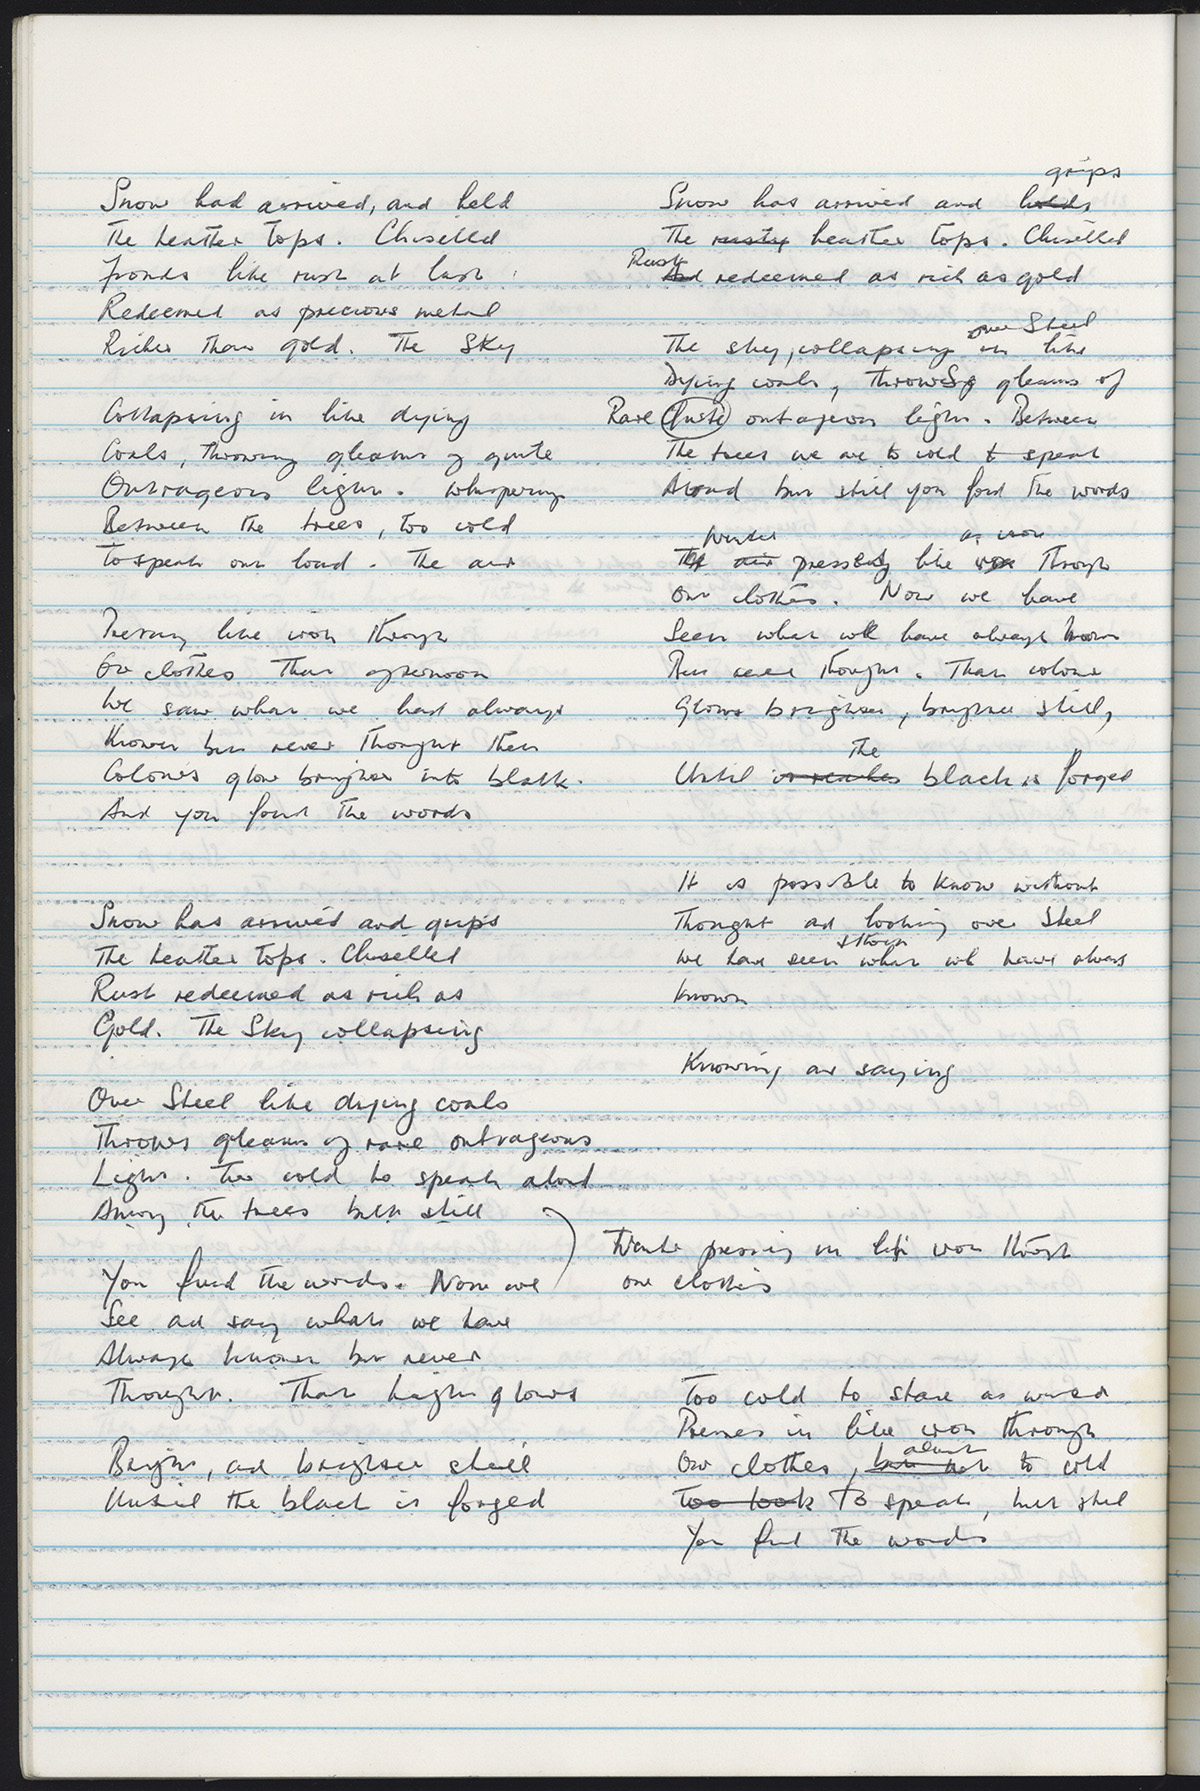 Snow had arrived, and held
The heather tops. Chiselled
fronds like rust at last
Redeemed as precious metal
Richer than gold. The Sky
Collapsing in like dying
Coals, throwing gleams of quite
Outrageous light. Whispering
Between the trees, too cold
To speak out loud. The air
like iron through
Our clothes that afternoon
We saw what we had always
Known but never thought then
Colours glow brighter into black.
And you found the words
Snow has arrived and grips
The heather tops. Chiselled
Rust redeemed as rich as
Gold. The Sky collapsing
Over Steel like dying coals
Throws gleams of rare outrageous
Light. Too cold to speak aloud
Among the trees but still
You find the words. Now we
See and say what we have
Always known but never
Thought. That light glows
Bright, and brighter still
Until the black is forged
grips
Snow has arrived and holds
The rusty heather tops. Chiselled
Rust
And redeemed as rich as gold
over Steel
The sky, collapsing in like
Dying coals, throws gleams of
Rare quite outrageous light. Between
The trees we are to cold to speak
Aloud but still you find the words
Winter as iron
The air pressing like iron through
Our clothes. Now we have
Seen what we have always known
But never thought. That colour
Glows brighter, brighter still,
the
Until it reaches black is forged
It is possible to know without
Thought and looking over Steel
We have seen what we have always
known
Knowing and saying
pressing in like iron through
our clothes
Too cold to stare as wind
Presses in like iron through
almost
Our clothes, but not to cold
Too look To speak, but still
You find the words